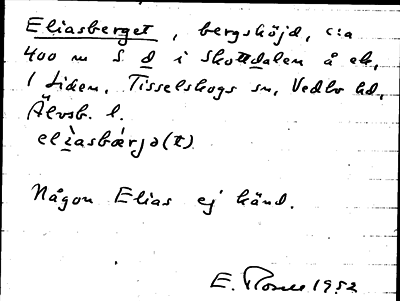 Eliasberget, bergshöjd, c:a
400 m S d i Skottdalen å ek.
1 Liden, Tisselskogs sn, Vedbo hd,
Älvsb. l.
elìasbærjə(t)
Någon Elias ej känd.
E. 1952